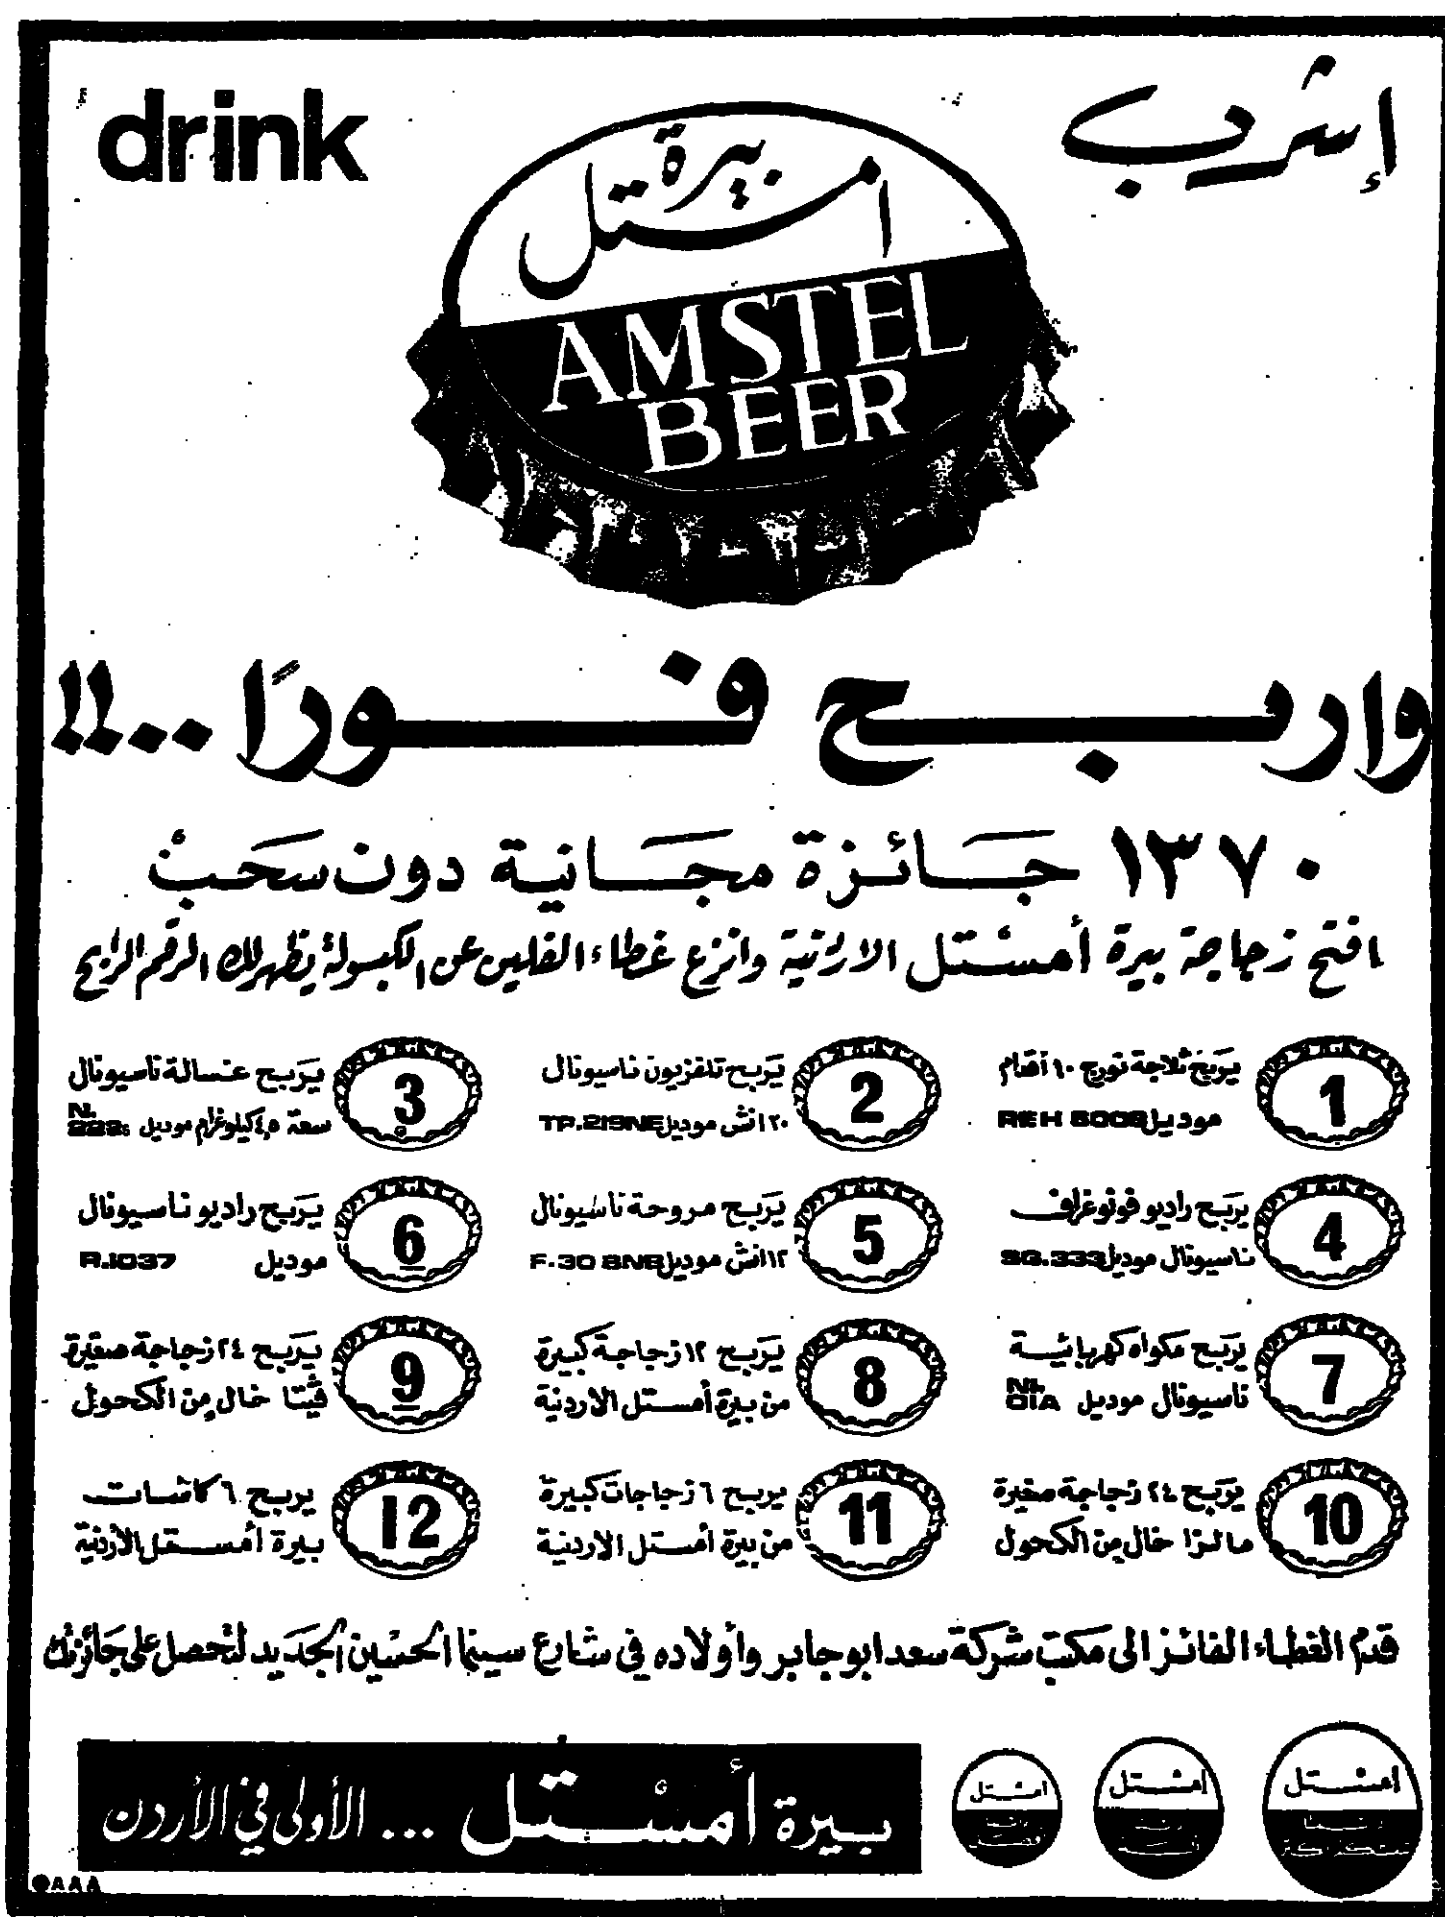 إشرب
drink
بيرة
امستل
AMSTEL
BEER
واربح فورًا ..!!
١٣٧٠ جائزة مجانية دون سحب
افتح زجاجة بيرة أمستل الاردنية وانزع غطاء الفلين عن الكبسولة يظهر لك الرقم الرابح
1
يربح ثلاجة نورج ١٠ أقدام
موديل
2
يربح تلفزيون ناسيونال
٢٠ انش موديل TP.219NE
3
يربح غسالة ناسيونال
سعة ٤,٥ كيلوغرام موديل
4
يربح راديو فونوغراف
ناسيونال موديل SG.333
5
يربح مروحة ناسيونال
١٢ انش موديل
6
يربح راديو ناسيونال
موديل R.1037
7
يربح مكواه كهربائية
ناسيونال موديل NI. 01A
8
يربح ١٢ زجاجة كبيرة
من بيرة أمستل الاردنية
9
يربح ٢٤ زجاجة صغيرة
فيتا خال من الكحول
10
يربح ٢٤ زجاجة صغيرة
مالزا خال من الكحول
11
يربح ٦ زجاجات كبيرة
من بيرة أمستل الاردنية
12
يربح ٦ كاسات
بيرة أمستل الأردنية
قدم الغطاء الفائز الى مكتب شركة سعد ابو جابر وأولاده في شارع سينما الحسين الجديد لتحصل على جائزتك
أمستل
أمستل
أمستل
بيرة أمستل ... الأولى في الأردن
AAA